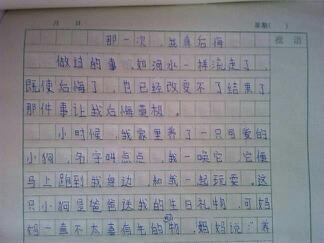 月 日 星期( )
那一次，我真后悔 批语
做过的事，如流水一样流走了，
既使后悔了，也已经改变不了结果了
那件事让我后悔莫极。
小时候，我家里养了一只可爱的
小狗，名字叫点点，我一唤它，它便
马上跑到我身边，和我一起玩耍。这
只小狗是爸爸送我的生日礼物，可妈
妈一直不太喜有毛的动物，妈妈说："养